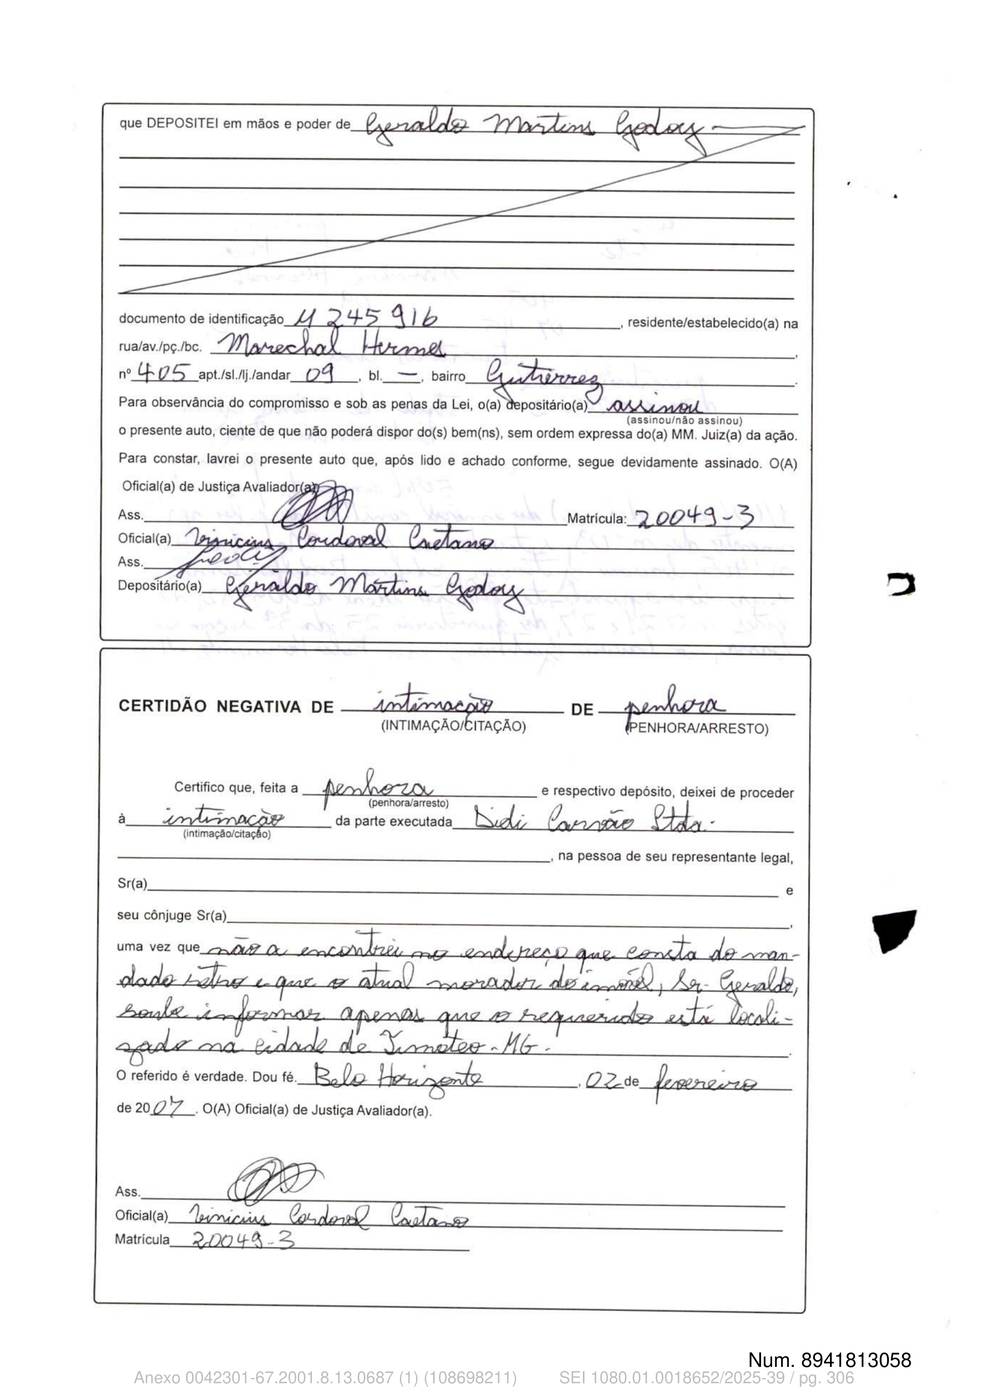 que DEPOSITEI em mãos e poder de Geraldo Martins Godoy
documento de identificação M 245916, residente/estabelecido(a) na
rua/av./pç./bc. Marechal Hermes,
nº 405 apt./sl./lj./andar 09, bl. —, bairro Gutierrez.
Para observância do compromisso e sob as penas da Lei, o(a) depositário(a) assinou
(assinou/não assinou)
o presente auto, ciente de que não poderá dispor do(s) bem(ns), sem ordem expressa do(a) MM. Juiz(a) da ação.
Para constar, lavrei o presente auto que, após lido e achado conforme, segue devidamente assinado. O(A)
Oficial(a) de Justiça Avaliador(a)
Ass. Matrícula: 20049-3
Oficial(a) Vinicius Cordoval Caetano
Ass.
Depositário(a) Geraldo Martins Godoy
CERTIDÃO NEGATIVA DE intimação DE penhora
(INTIMAÇÃO/CITAÇÃO) (PENHORA/ARRESTO)
Certifico que, feita a penhora e respectivo depósito, deixei de proceder
(penhora/arresto)
à intimação da parte executada Didi Carvão Ltda.
(intimação/citação)
, na pessoa de seu representante legal,
Sr(a) e
seu cônjuge Sr(a),
uma vez que não a encontrei no endereço que consta do man-
dado retro e que o atual morador do imóvel, Sr. Geraldo,
soube informar apenas que o requerido está locali-
zado na cidade de Timóteo-MG.
O referido é verdade. Dou fé. Belo Horizonte, 02 de fevereiro
de 2007. O(A) Oficial(a) de Justiça Avaliador(a).
Ass.
Oficial(a) Vinicius Cordoval Caetano
Matrícula 20049-3
Num. 8941813058
Anexo 0042301-67.2001.8.13.0687 (1) (108698211) SEI 1080.01.0018652/2025-39 / pg. 306